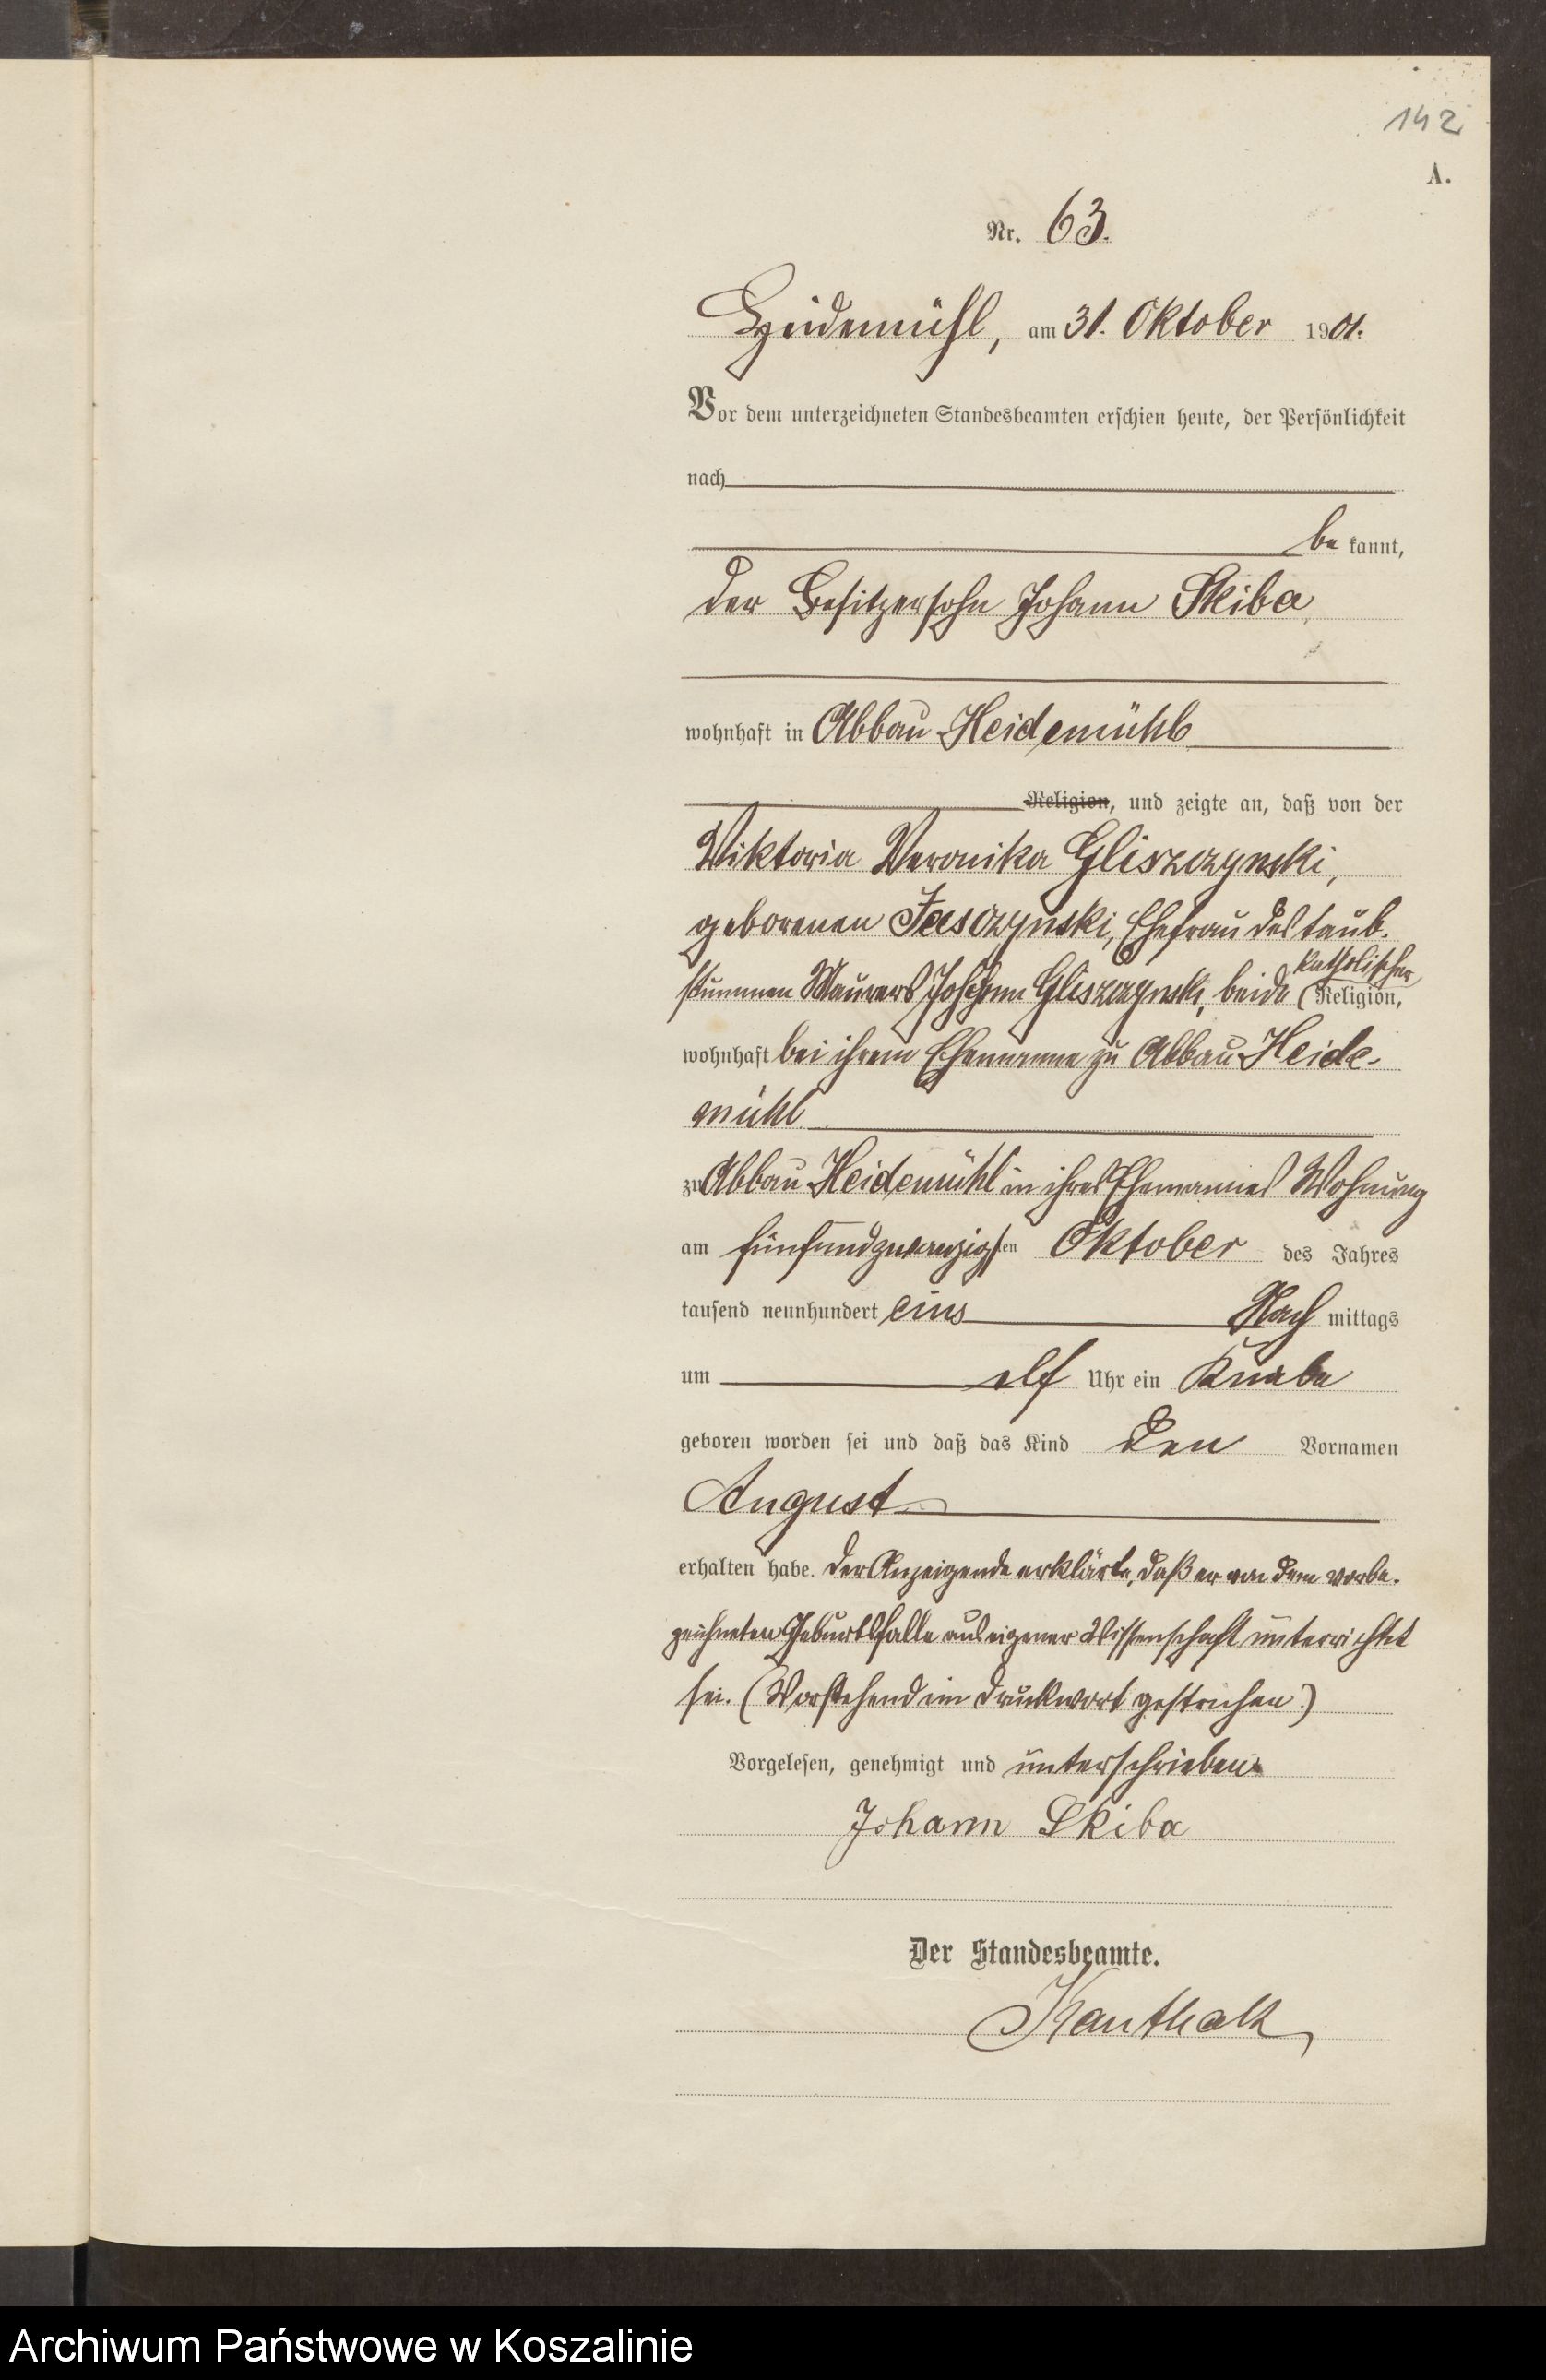 142
A.
Nr. 63.
Heidemühl, am 31. Oktober 1901.
Vor dem unterzeichneten Standesbeamten erschien heute, der Persönlichkeit
nach
be kannt,
der Besitzersohn Johann Skiba,
wohnhaft in Abbau Heidemühl
Religion, und zeigte an, daß von der
Viktoria Veronika Gliszczynski,
geborenen Jasczynski, Ehefrau des taub-
stummen Maurers Johann Gliszczynski, beide katholischer Religion,
wohnhaft bei ihrem Ehemanne zu Abbau Heide-
mühl
zu Abbau Heidemühl in ihres Ehemannes Wohnung
am fünfundzwanzigsten Oktober des Jahres
tausend neunhundert eins Nach mittags
um elf Uhr ein Knabe
geboren worden sei und daß das Kind den Vornamen
August
erhalten habe. Der Anzeigende erklärte, daß er von dem vorbe-
zeichneten Geburtsfalle aus eigener Wissenschaft unterrichtet
sei. (Vorstehend ein Druckwort gestrichen.)
Vorgelesen, genehmigt und unterschrieben
Johann Skiba
Der Standesbeamte.
Kanthak
Archiwum Państwowe w Koszalinie